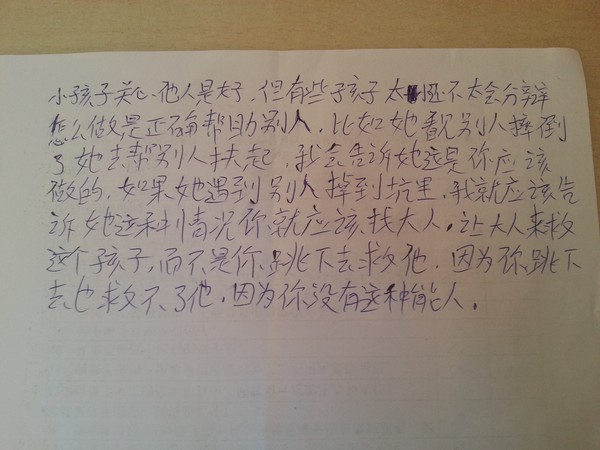 小孩子关心他人是好,但有些子孩子太还不太会分辩
怎么做是正确帮助别人,比如她看见别人摔倒
了她去帮别人扶起,我会告诉她这是你应该
做的,如果她遇到别人掉到坑里,我就应该告
诉她这种情况你就应该找大人。让大人来救
这个孩子,而不是你跳下去救他.因为你跳下
去也救不了他,因为你没有这种能人。